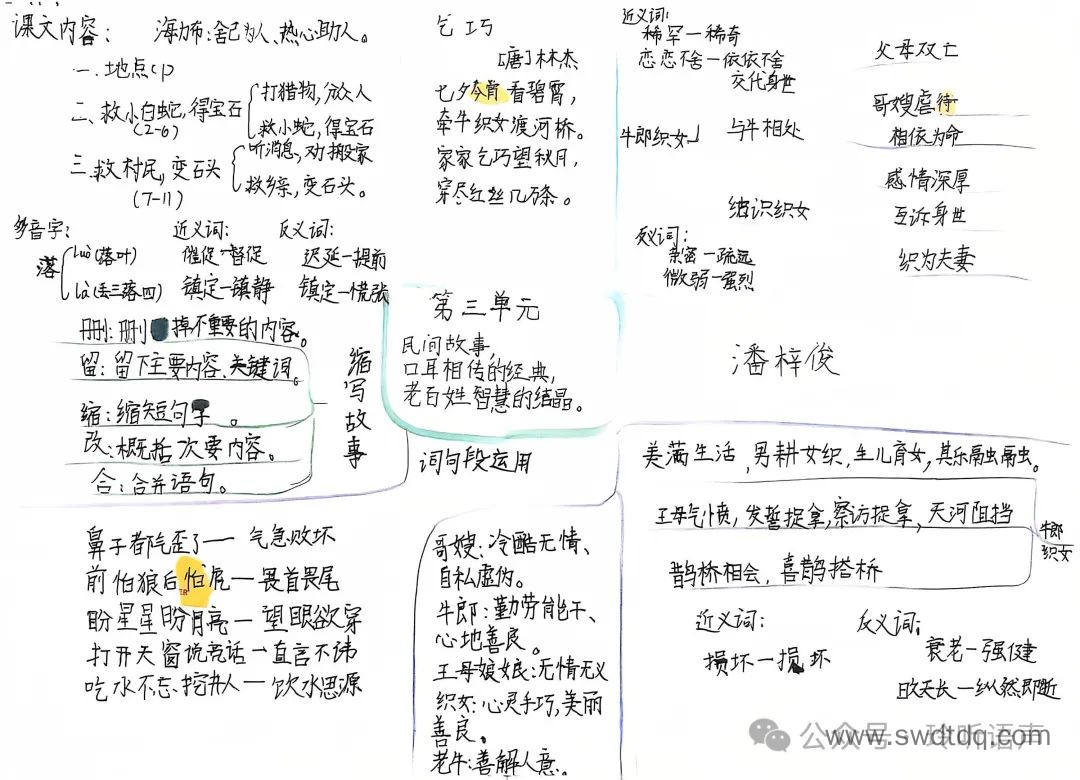 课文内容: 海力布:舍己为人、热心助人。
一.地点(1)
二、救小白蛇,得宝石
(2-6)
打猎物,放众人
救小蛇,得宝石
三.救村民,变石头
(7-11)
听消息,劝搬家
救乡亲,变石头。
多音字:
落
luò(落叶)
là(丢三落四)
近义词:
催促一督促
镇定一镇静
反义词:
迟延一提前
镇定一慌张
乞巧
[唐]林杰
七夕今宵看碧霄,
牵牛织女渡河桥。
家家乞巧望秋月,
穿尽红丝几万条。
近义词:
稀罕一稀奇
恋恋不舍一依依不舍
牛郎织女
交代身世
与牛相处
结识织女
父母双亡
哥嫂虐待
相依为命
感情深厚
互诉身世
织为夫妻
反义词:
亲密一疏远
微弱一强烈
第三单元
民间故事,
口耳相传的经典,
老百姓智慧的结晶。
潘梓俊
缩写故事
删:删掉不重要的内容。
留:留下主要内容、关键词。
缩:缩短句子。
改:概括次要内容。
合:合并语句。
词句段运用
鼻子都气歪了一气急败坏
前怕狼后怕虎一畏首畏尾
盼星星盼月亮一望眼欲穿
打开天窗说亮话一直言不讳
吃水不忘挖井人一饮水思源
哥嫂:冷酷无情、
自私虚伪。
牛郎:勤劳能干、
心地善良。
王母娘娘:无情无义
织女:心灵手巧,美丽
善良。
老牛:善解人意。
牛郎
织女
美满生活,男耕女织,生儿育女,其乐融融。
王母气愤,发誓捉拿,察访捉拿,天河阻挡
鹊桥相会,喜鹊搭桥
近义词:
损坏一损坏
反义词:
衰老一强健
一纵然即断
公众号
www.swdtdq.com